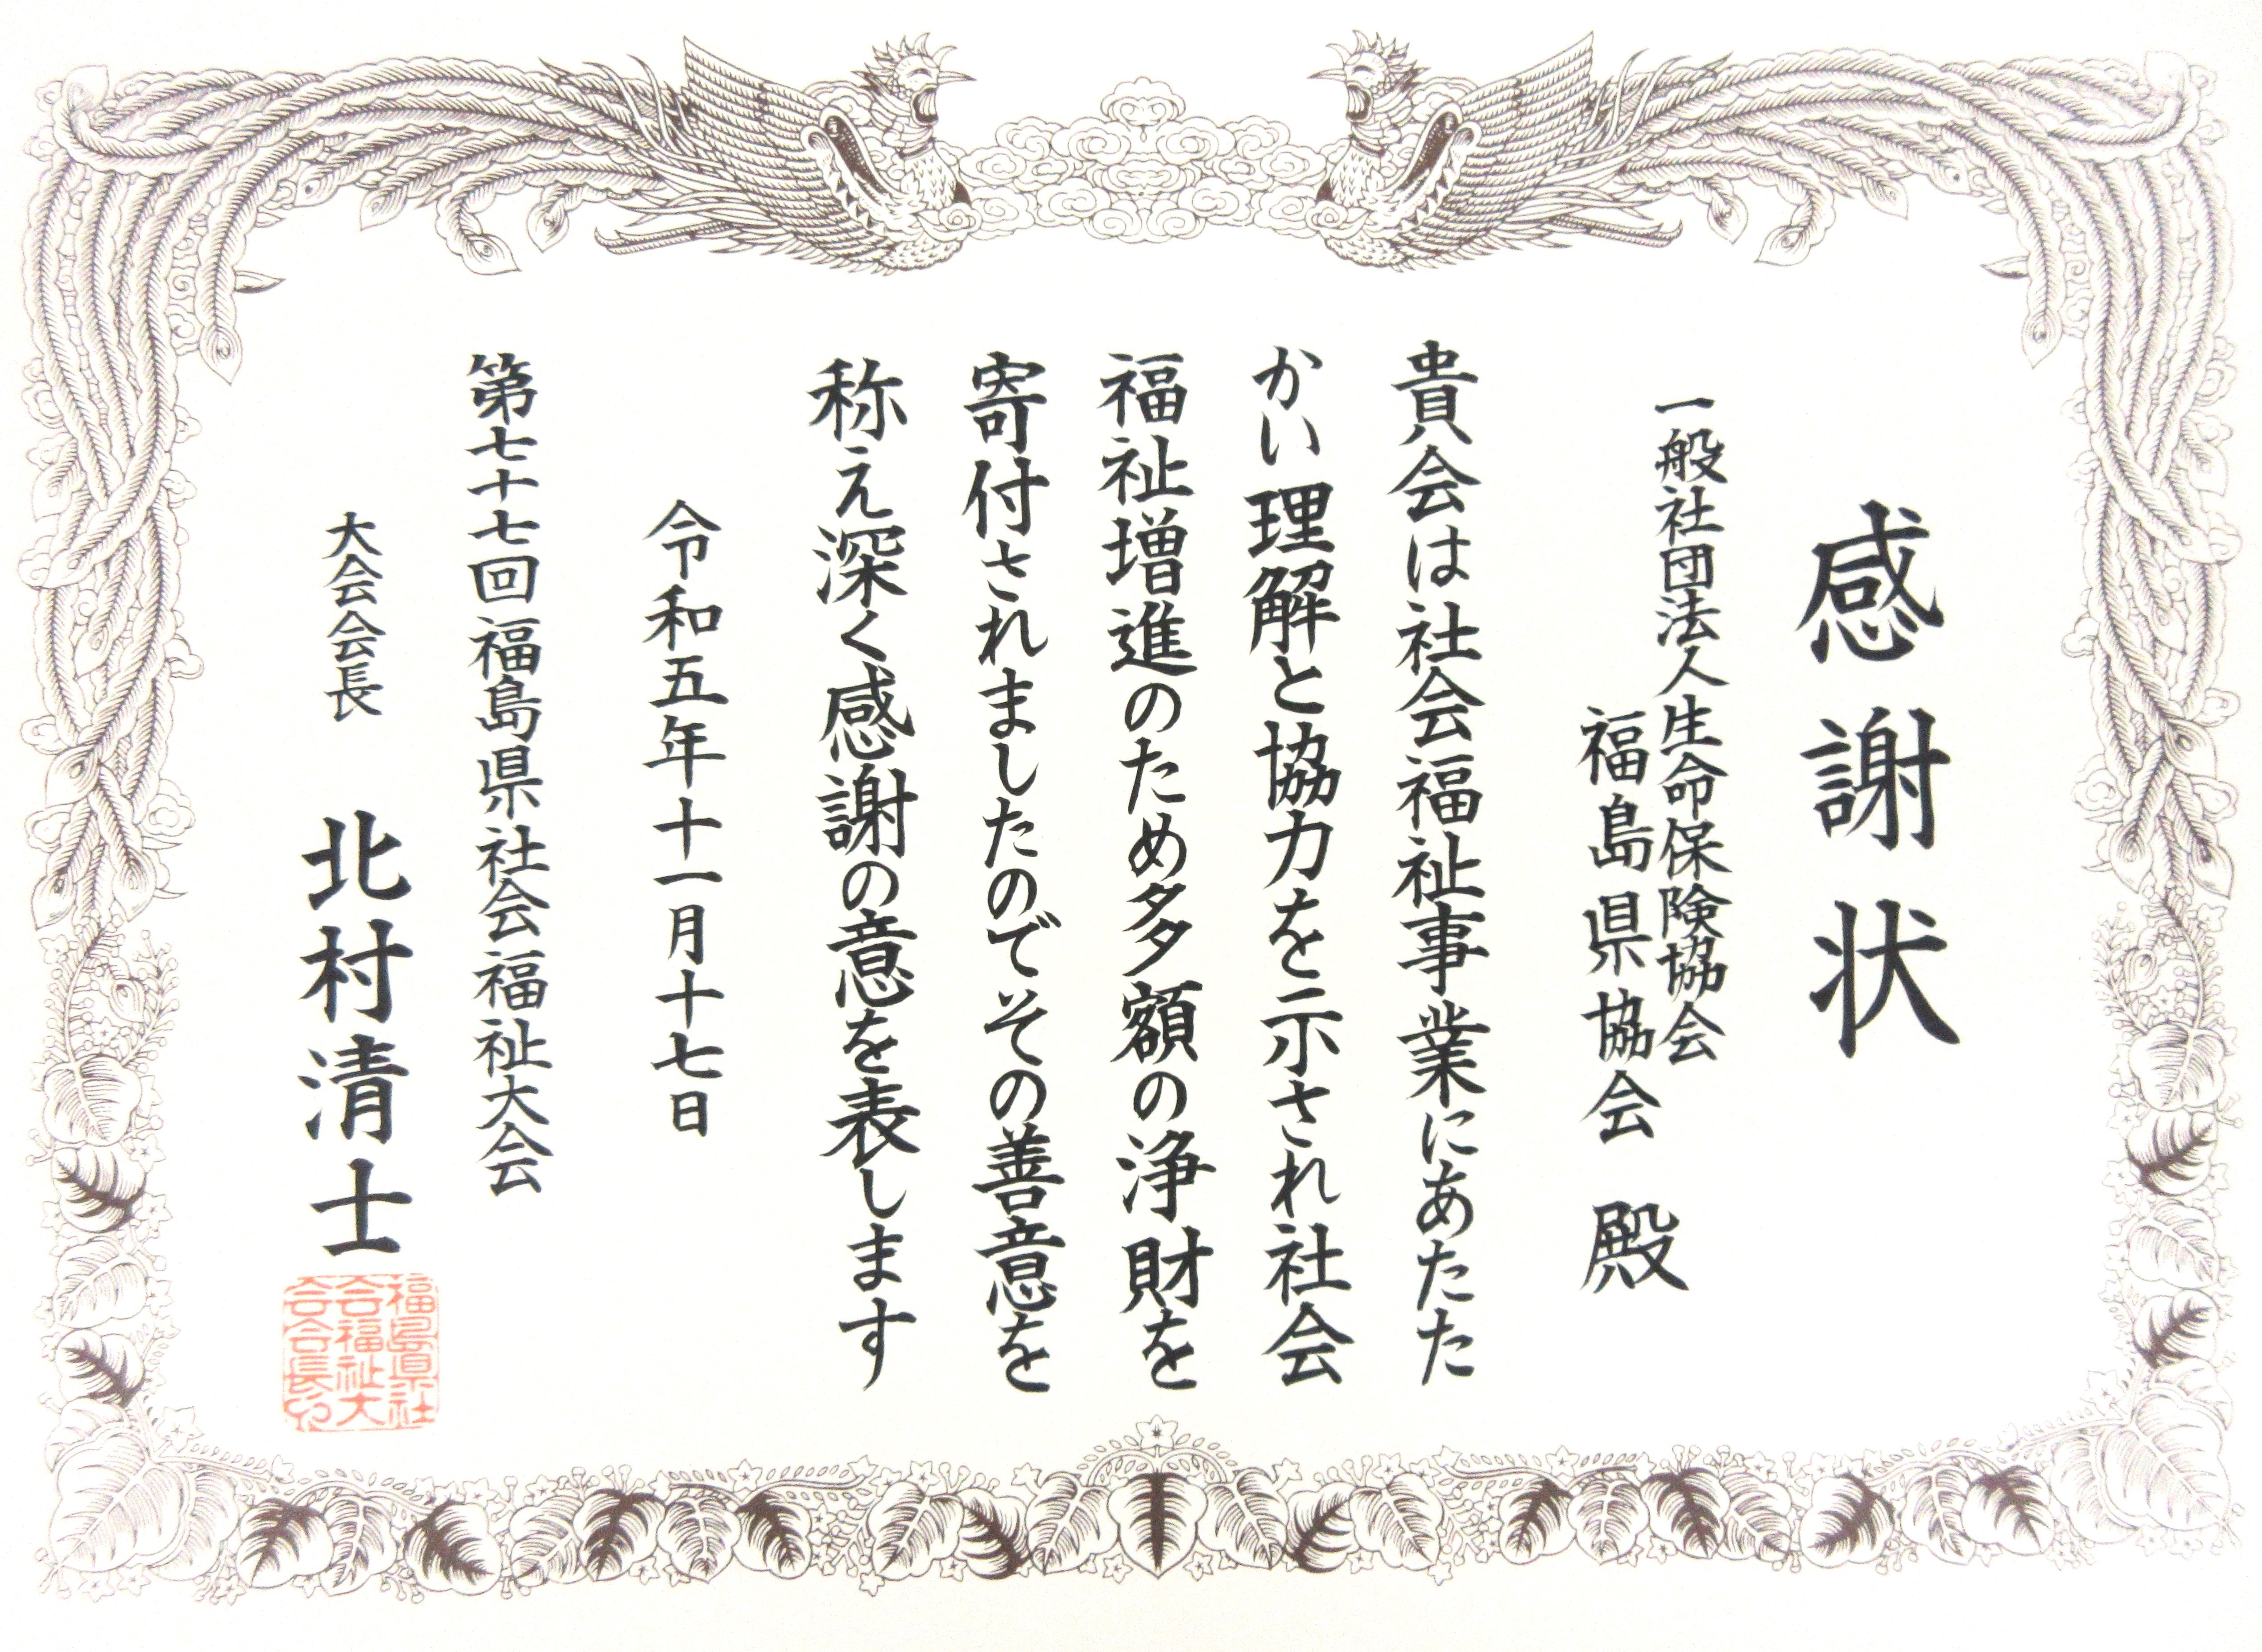 感謝状
一般社団法人生命保険協会
福島県協会 殿
貴会は社会福祉事業にあたた
かい理解と協力を示され社会
福祉増進のため多額の浄財を
寄付されましたのでその善意を
称え深く感謝の意を表します
令和五年十一月十七日
第七十七回福島県社会福祉大会
大会会長 北村清士
福島県社
会福祉大
会会長印